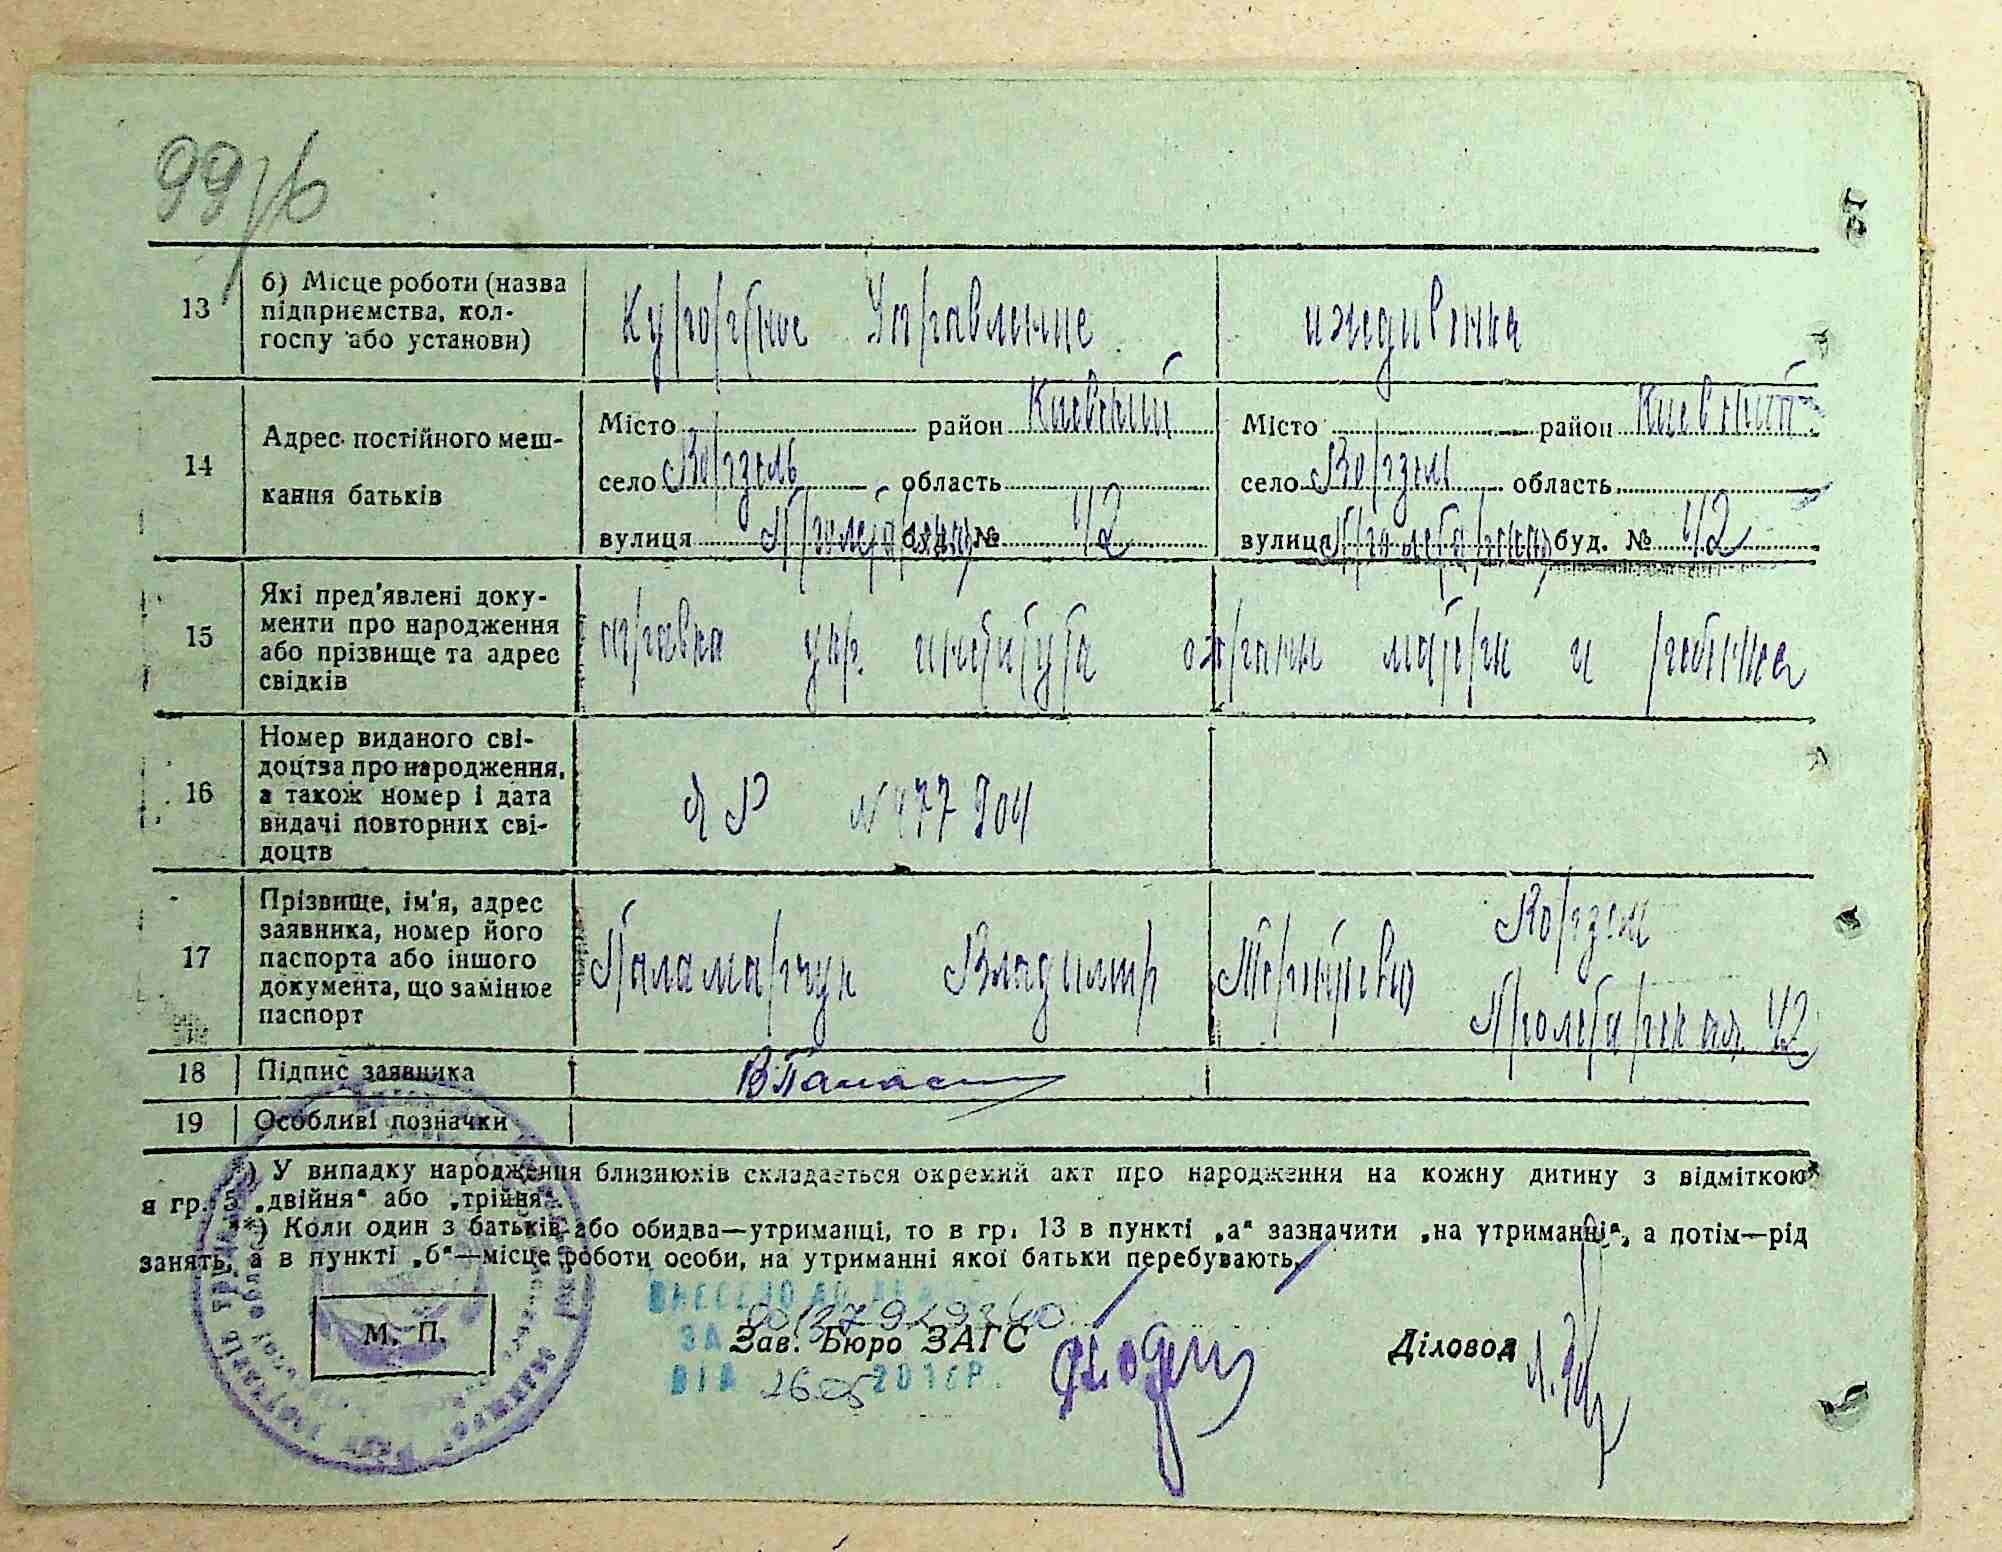 99/6
13 б) Місце роботи (назва підприємства, колгоспу або установи) Курортное Управление иждивенка
14 Адрес постійного мешкання батьків
Місто район Киевский Місто район Киевский
село Ворзель область село Ворзель область
вулиця Пролетарская буд. № 42 вулиця Пролетарская буд. № 42
15 Які пред'явлені документи про народження або прізвище та адрес свідків справка укр. института охраны матери и ребенка
16 Номер виданого свідоцтва про народження, а також номер і дата видачі повторних свідоцтв № 477904
17 Прізвище, ім'я, адрес заявника, номер його паспорта або іншого документа, що замінює паспорт Паламарчук Владимир Ворзель
Пролетарская 42
18 Підпис заявника
19 Особливі позначки
*) У випадку народження близнюків складається окремий акт про народження на кожну дитину з відміткою
в гр. 5 „двійня" або „трійня".
**) Коли один з батьків або обидва—утриманці, то в гр. 13 в пункті „а" зазначити „на утриманні", а потім—рід
занять, а в пункті „б"—місце роботи особи, на утриманні якої батьки перебувають.
ВНЕСЕНО ДО
ЗА
М. П. Зав. Бюро ЗАГС Діловод
ВІД 26 05 201 Р.